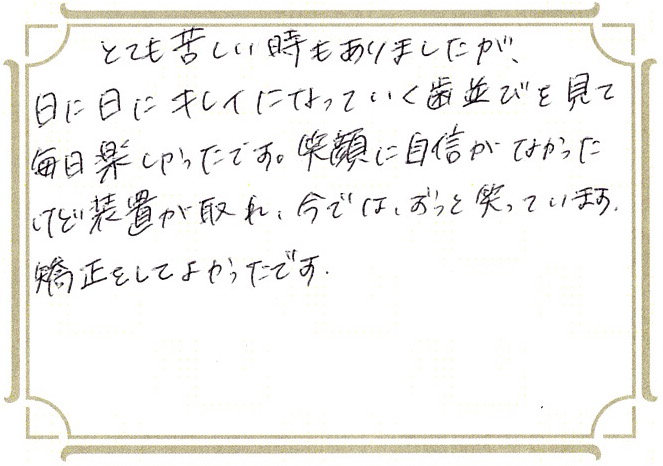 とても苦しい時もありましたが、
日に日にキレイになっていく歯並びを見て
毎日楽しかったです。笑顔に自信がなかった
けど装置が取れ、今では、ずっと笑っています.
矯正をしてよかったです.